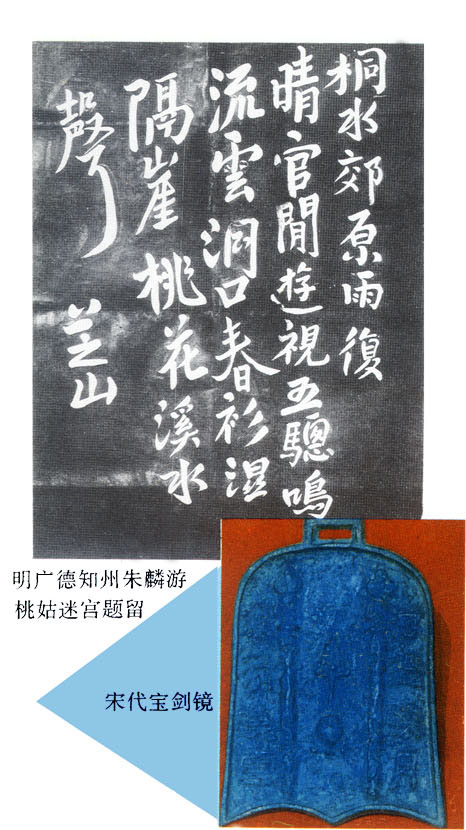 桐水郊原雨復
晴官閒遊視五驄鳴
流雲洞口春衫湿
隔崖桃花溪水
聲
芝山
明广德知州朱麟游
桃姑迷宫题留
宋代宝剑镜